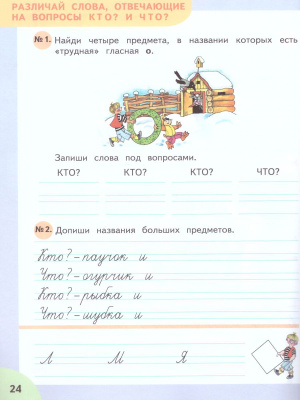 РАЗЛИЧАЙ СЛОВА, ОТВЕЧАЮЩИЕ
НА ВОПРОСЫ КТО? И ЧТО?
№1. Найди четыре предмета, в названии которых есть
«трудная» гласная о.
Запиши слова под вопросами.
КТО? КТО? КТО? ЧТО?
№2. Допиши названия больших предметов.
Кто? – паучок и
Что? – огурчик и
Кто? – рыбка и
Что? – шубка и
Л М Я
24